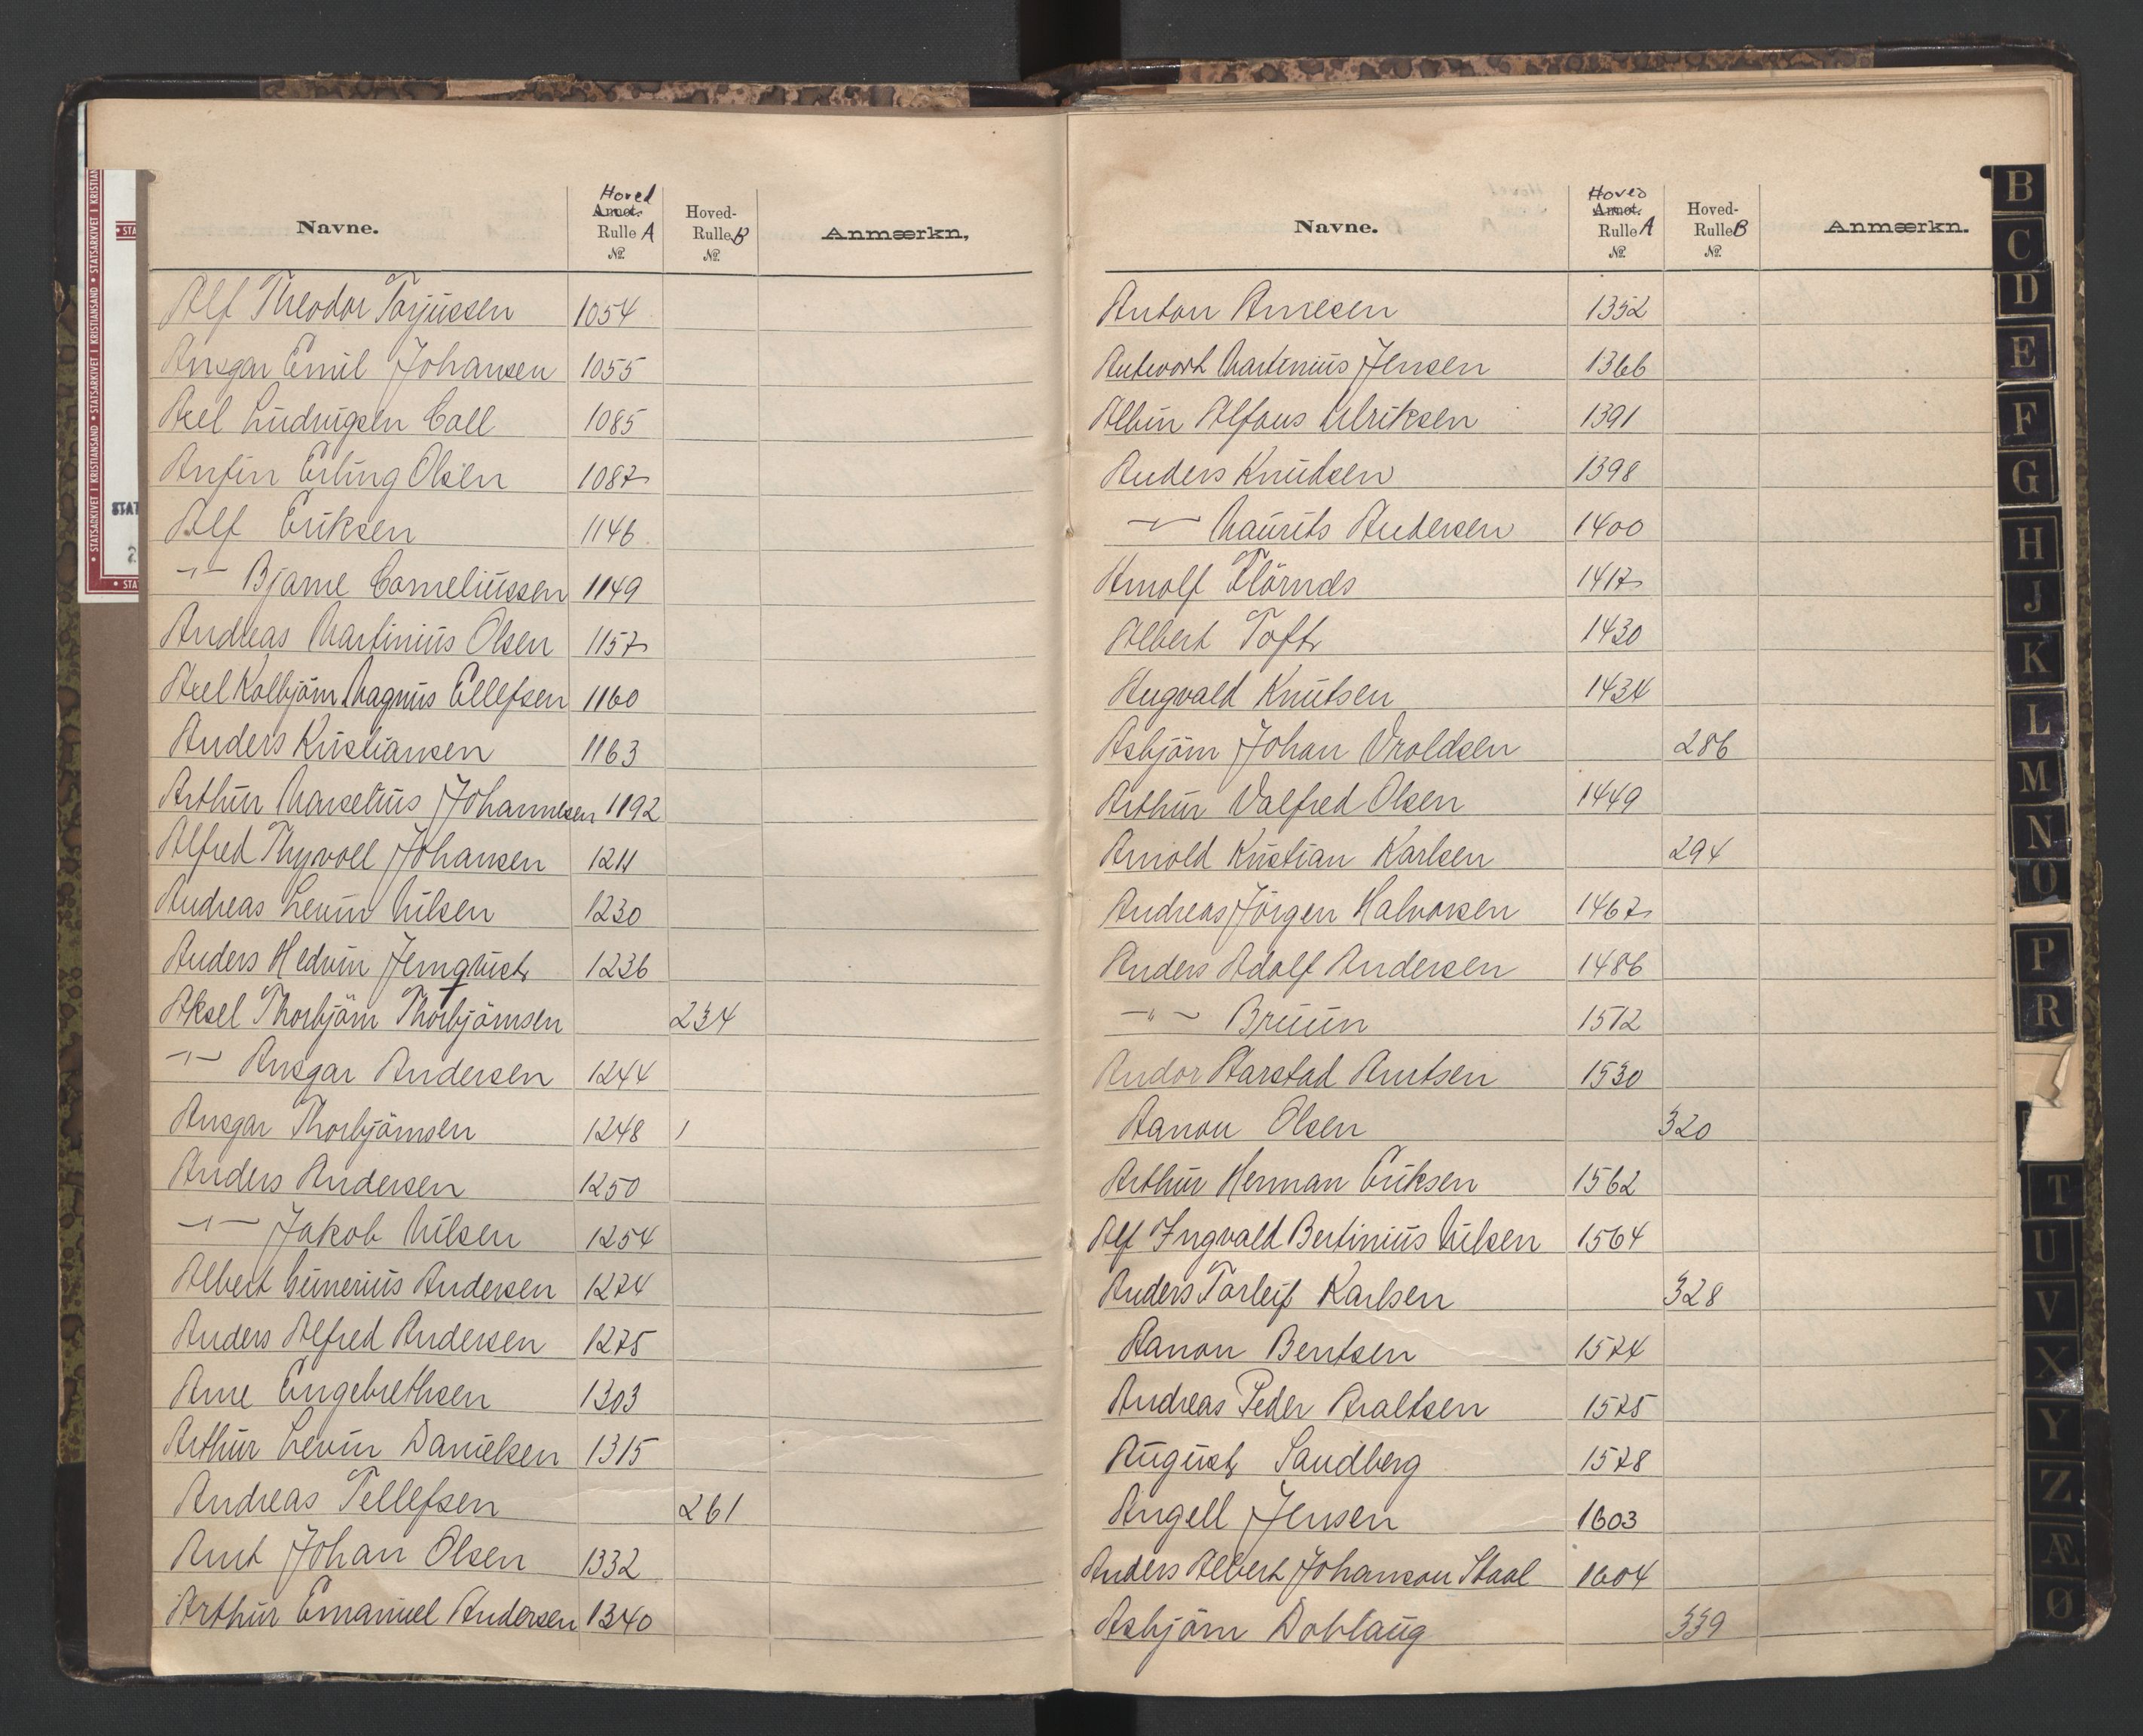 Navne.
Hoved
Annot.
Rulle A
No.
Hoved-
Rulle B
No.
Anmærkn.
Alf Theodor Torjussen 1054
Ansgar Emil Johansen 1055
Axel Ludvigsen Call 1085
Anfin Erling Olsen 1087
Alf Eriksen 1146
-"- Bjarne Corneliussen 1149
Andreas Martinius Olsen 1157
Axel Kolbjörn Magnus Ellefsen 1160
Anders Kristiansen 1163
Arthur Marselius Johannesen 1192
Alfred Thyvoll Johansen 1211
Andreas Levin Nilsen 1230
Anders Hedvin Jernqvist 1236
Aksel Thorbjörn Thorbjörnsen 234
-"- Ansgar Andersen 1244
Ansgar Thorbjörnsen 1248 1
Anders Andersen 1250
-"- Jakob Nilsen 1254
Albert Gunerius Andersen 1274
Anders Alfred Andersen 1275
Arne Engebrethsen 1303
Arthur Levin Danielsen 1315
Andreas Tellefsen 261
Arnt Johan Olsen 1332
Arthur Emanuel Andersen 1340
Navne.
Hoved
Annot.
Rulle A
No.
Hoved-
Rulle B
No.
Anmærkn.
Anton Arnesen 1352
Antwort Martinius Jensen 1366
Albin Alfons Ulriksen 1391
Anders Knudsen 1398
-"- Maurits Andersen 1400
Arnolf 1417
Albert Toft 1430
Augvald Knutsen 1434
Asbjörn Johan Vroldsen 286
Arthur Valfred Olsen 1449
Arnold Kristian Karlsen 294
Andreas Jörgen Halvorsen 1467
Anders Adolf Andersen 1486
-"- Bruun 1512
Andor Harstad Arntsen 1530
Aanon Olsen 320
Arthur Herman Eriksen 1562
Alf Ingvald Bertinius Nilsen 1564
Anders Torleif Karlsen 328
Aanon Bentsen 1574
Andreas Peder Araltsen 1575
August Sandberg 1578
Angell Jensen 1603
Anders Albert Johanson Staal 1604
Asbjörn Doblaug 339
B
C
D
E
F
G
H
J
K
L
M
N
O
P
R
T
U
V
X
Y
Z
Æ
Ø
STATSARKIVET I KRISTIANSAND • STATSARKIVET I KRISTIANSAND • STATSARKIVET I KRISTIAN